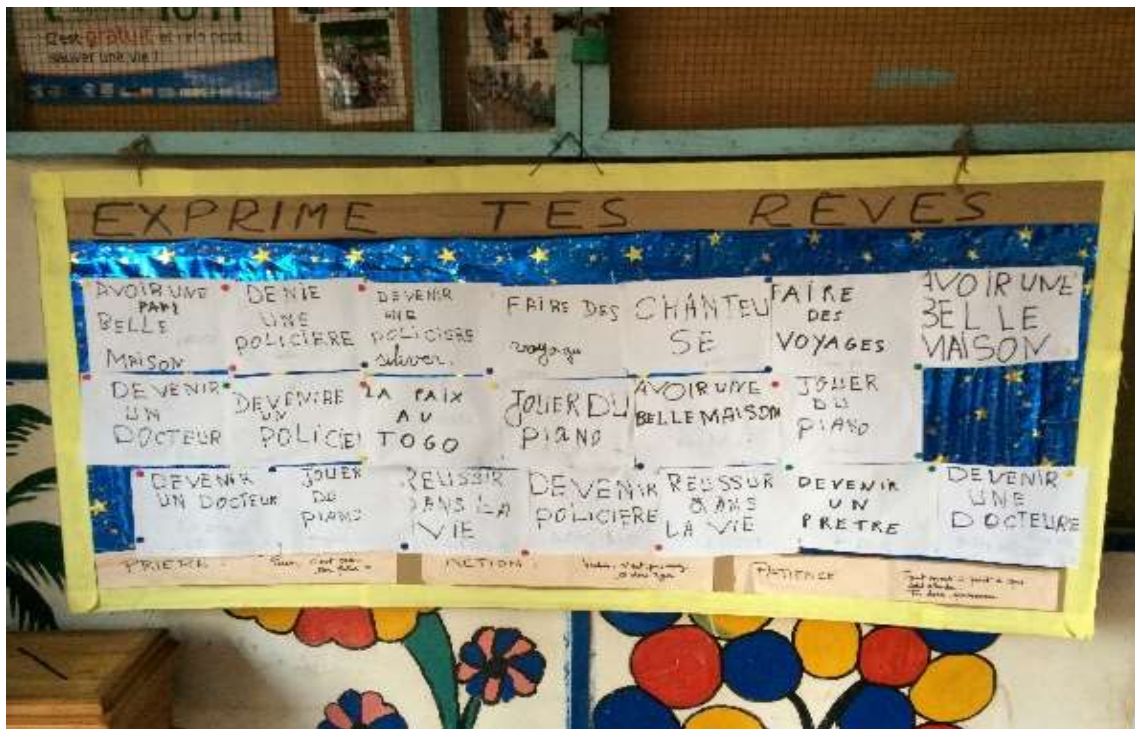 10 11
C'est gratuit et cela peut
sauver une vie !
EXPRIME TES RÊVES
AVOIR UNE
PAPI
BELLE
MAISON
DENIE
UNE
POLICIERE
DEVENIR
UNE
POLICIERE
FAIRE DES
voyage
CHANTEU
SE
FAIRE
DES
VOYAGES
AVOIR UNE
BELLE
MAISON
DEVENIR
UN
DOCTEUR
DEVENIRE
UN
POLICIE
LA PAIX
AU
TOGO
JOUER DU
PIANO
AVOIR UNE
BELLE MAISON
JOUER
DU
PIANO
DEVENIR
UN DOCTEUR
JOUER
DU
PIANO
REUSSIR
DANS LA
VIE
DEVENIR
POLICIERE
REUSSUR
DANS
LA VIE
DEVENIR
UN
PRETRE
DEVENIR
UNE
DOCTEURE
PRIERE :
ACTION :
PATIENCE